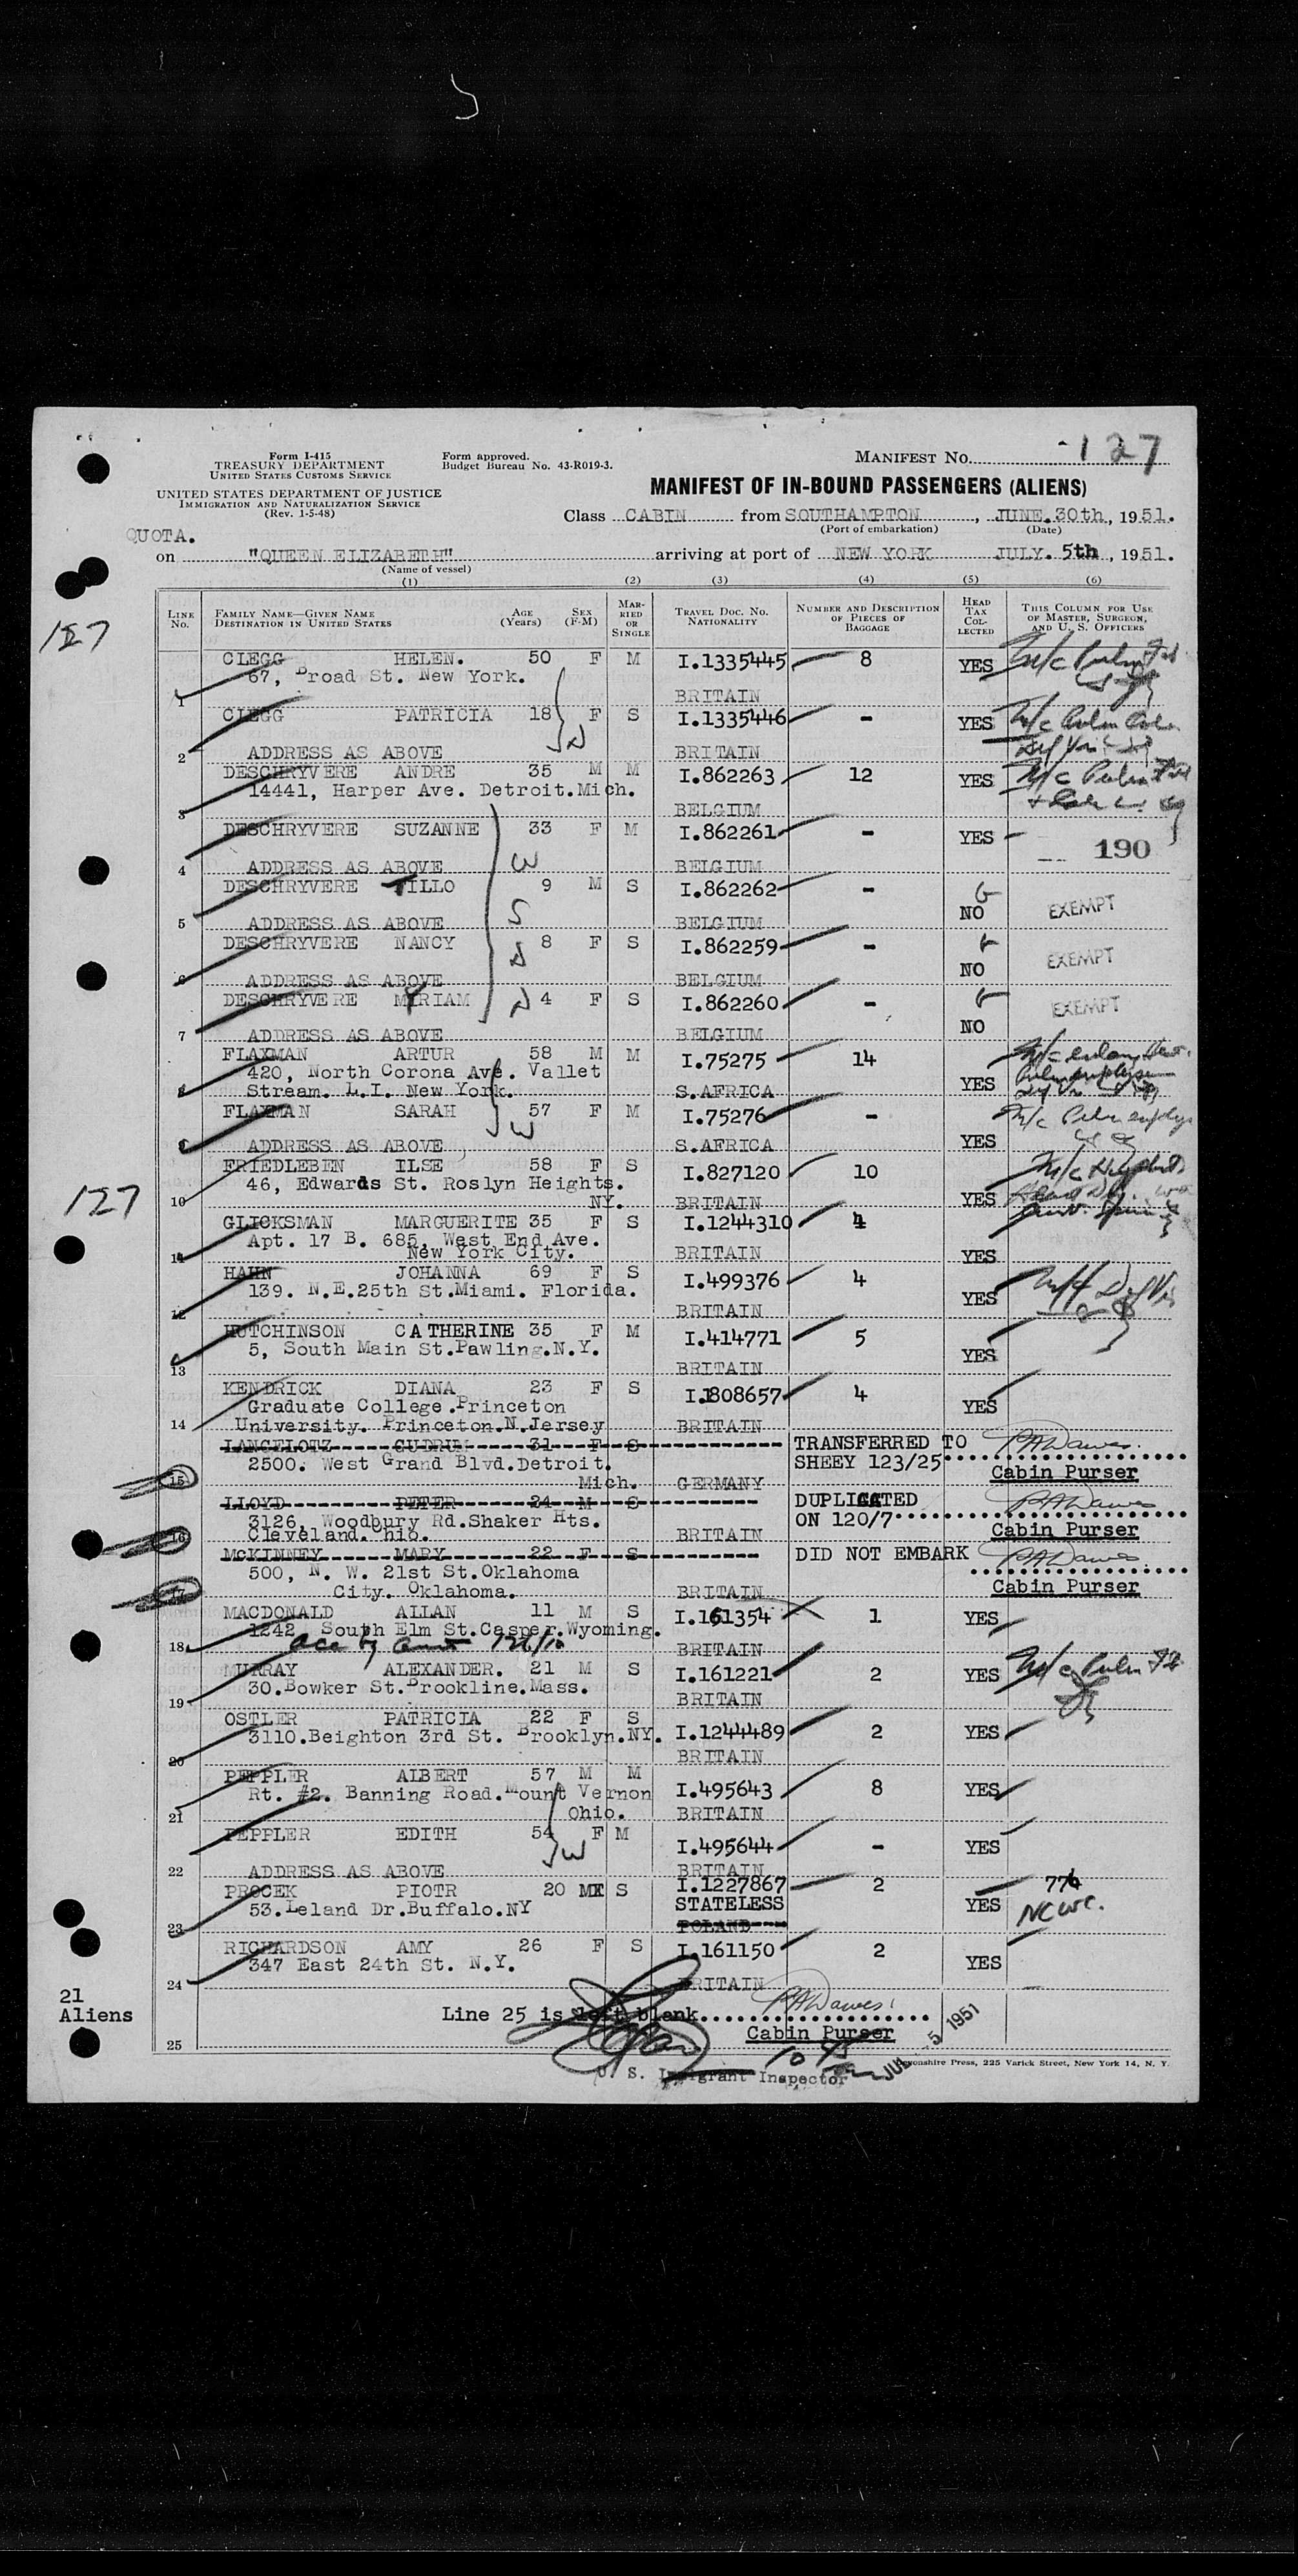 Form I-415
TREASURY DEPARTMENT
UNITED STATES CUSTOMS SERVICE
UNITED STATES DEPARTMENT OF JUSTICE
IMMIGRATION AND NATURALIZATION SERVICE
(Rev. 1-5-48)
Form approved.
Budget Bureau No. 43-R019-3.
MANIFEST No. 127
MANIFEST OF IN-BOUND PASSENGERS (ALIENS)
Class CABIN from SOUTHAMPTON, JUNE.30th, 1951.
(Port of embarkation) (Date)
QUOTA.
on "QUEEN ELIZABETH" arriving at port of NEW YORK JULY. 5th, 1951.
(Name of vessel)
(1) (2) (3) (4) (5) (6)
LINE No. FAMILY NAME—GIVEN NAME DESTINATION IN UNITED STATES AGE (Years) SEX (F-M) MARRIED OR SINGLE TRAVEL DOC. NO. NATIONALITY NUMBER AND DESCRIPTION OF PIECES OF BAGGAGE HEAD TAX COLLECTED THIS COLUMN FOR USE OF MASTER, SURGEON, AND U. S. OFFICERS
127
CLEGG HELEN. 50 F M I.1335445 8 YES
67, Broad St. New York.
1 BRITAIN
CLEGG PATRICIA 18 F S I.1335446 - YES
D
2 ADDRESS AS ABOVE BRITAIN
DESCHRYVERE ANDRE 35 M M I.862263 12 YES
14441, Harper Ave. Detroit.Mich.
3 BELGIUM
DESCHRYVERE SUZANNE 33 F M I.862261 - YES
190
W
4 ADDRESS AS ABOVE BELGIUM
DESCHRYVERE TILLO 9 M S I.862262 - NO EXEMPT
S
5 ADDRESS AS ABOVE BELGIUM
DESCHRYVERE NANCY 8 F S I.862259 - NO EXEMPT
D
6 ADDRESS AS ABOVE BELGIUM
DESCHRYVERE MYRIAM 4 F S I.862260 - NO EXEMPT
D
7 ADDRESS AS ABOVE BELGIUM
FLAXMAN ARTUR 58 M M I.75275 14 YES
420, North Corona Ave. Vallet
8 Stream. L.I. New York. S.AFRICA
FLAXMAN SARAH 57 F M I.75276 - YES
W
9 ADDRESS AS ABOVE S.AFRICA
FRIEDLEBEN ILSE 58 F S I.827120 10 YES
46, Edwards St. Roslyn Heights.
127
10 NY. BRITAIN
GLICKSMAN MARGUERITE 35 F S I.1244310 4 YES
Apt. 17 B. 685, West End Ave.
11 New York City. BRITAIN
HAHN JOHANNA 69 F S I.499376 4 YES
139. N.E.25th St.Miami. Florida.
12 BRITAIN
HUTCHINSON CATHERINE 35 F M I.414771 5 YES
5, South Main St.Pawling.N.Y.
13 BRITAIN
KENDRICK DIANA 23 F S I.1808657 4 YES
Graduate College.Princeton
14 University. Princeton.N.Jersey BRITAIN
LANCELOTZ GUDRUM 31 F S TRANSFERRED TO
2500. West Grand Blvd.Detroit. SHEEY 123/25
15 Mich. GERMANY Cabin Purser
LLOYD PETER 24 M S DUPLICATED
3126, Woodbury Rd.Shaker Hts. ON 120/7
16 Cleveland.Ohio. BRITAIN Cabin Purser
McKINNEY MARY 22 F S DID NOT EMBARK
500, N. W. 21st St.Oklahoma
17 City. Oklahoma. BRITAIN Cabin Purser
MACDONALD ALLAN 11 M S I.161354 1 YES
1242 South Elm St.Casper.Wyoming.
18 acc by aunt 126/10 BRITAIN
MURRAY ALEXANDER. 21 M S I.161221 2 YES
30.Bowker St.Brookline.Mass.
19 BRITAIN
OSTLER PATRICIA 22 F S I.1244489 2 YES
3110.Beighton 3rd St. Brooklyn.NY.
20 BRITAIN
PEPPLER ALBERT 57 M M I.495643 8 YES
Rt. #2. Banning Road.Mount Vernon
21 Ohio. BRITAIN
PEPPLER EDITH 54 F M I.495644 - YES
W
22 ADDRESS AS ABOVE BRITAIN
PROCEK PIOTR 20 M S I.1227867 2 YES 776
53.Leland Dr.Buffalo.NY STATELESS NCWC.
23 POLAND
RICHARDSON AMY 26 F S I.161150 2 YES
347 East 24th St. N.Y.
24 BRITAIN
21
Aliens
Line 25 is left blank
Cabin Purser
25
10 45
JUL 5 1951
U. S. Immigrant Inspector
Devonshire Press, 225 Varick Street, New York 14, N. Y.